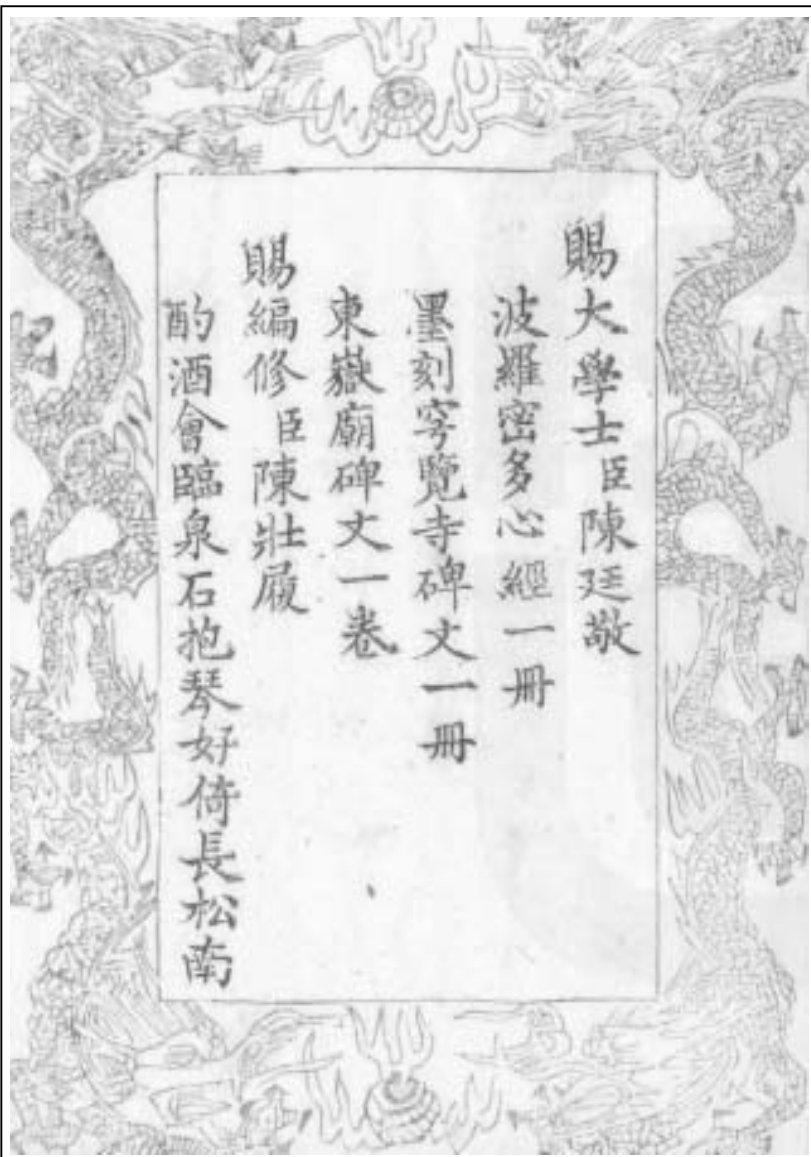 賜大學士臣陳廷敬
波羅密多心經一冊
墨刻穹覽寺碑文一冊
東嶽廟碑文一卷
賜編修臣陳壯履
酌酒會臨泉石抱琴好倚長松南